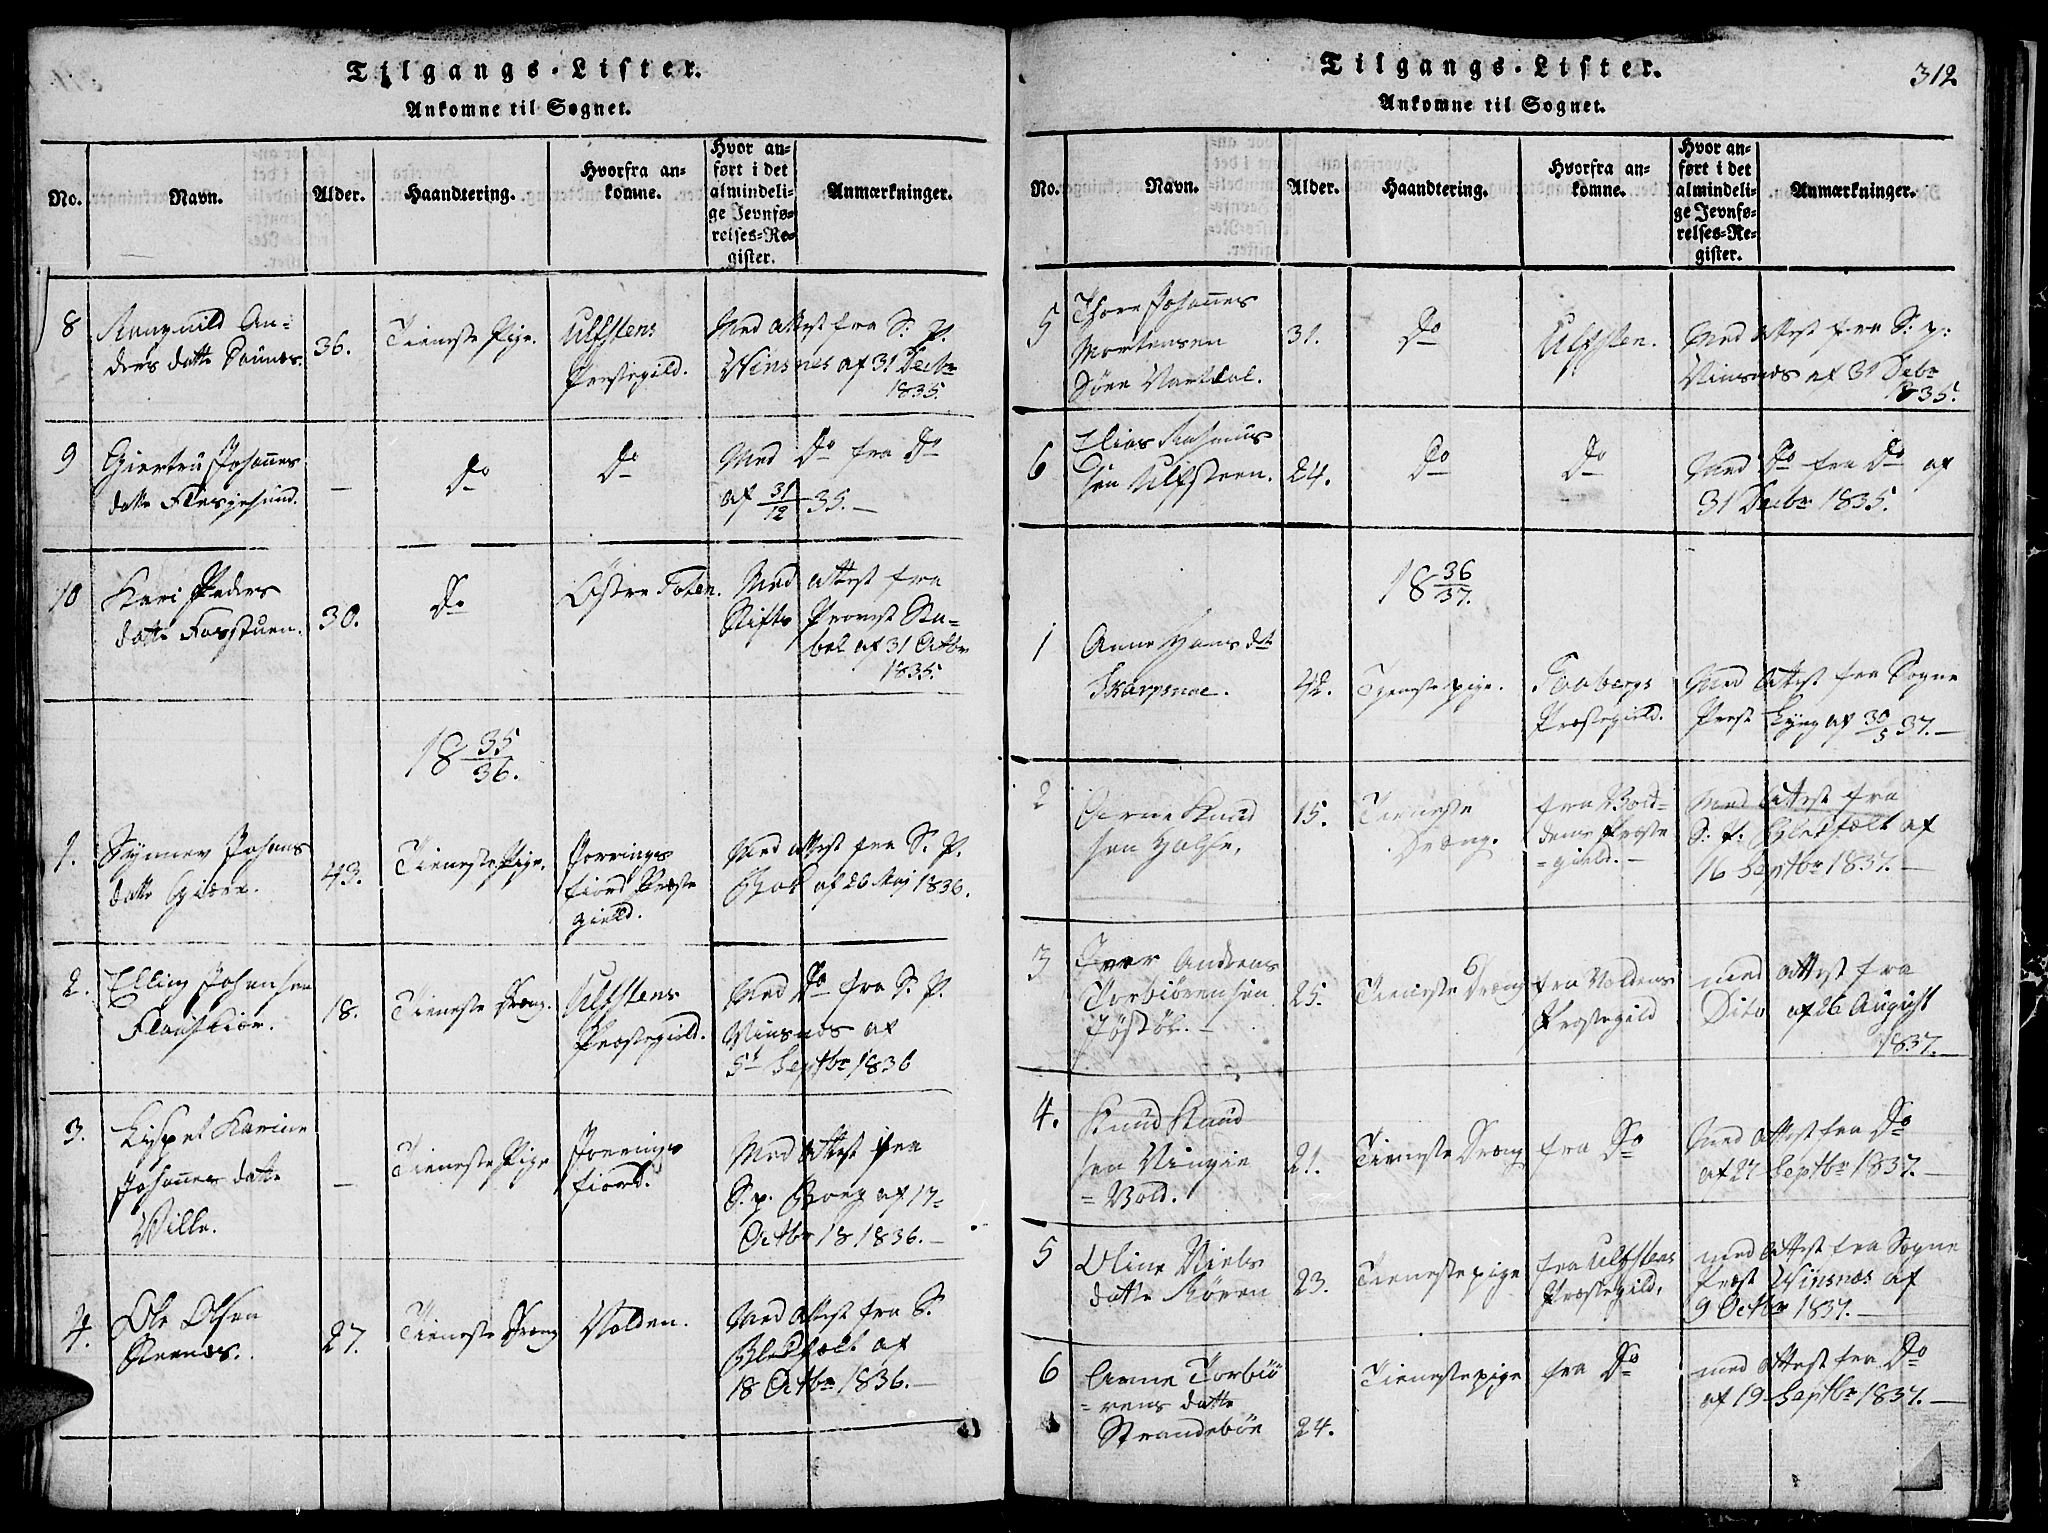 Tilgangs-Lister.
Ankomne til Sognet.
No.
Navn.
Alder.
Haandtering.
Hvorfra an-
komne.
Hvor an-
ført i det
almindeli-
ge Jevnfø-
relses-Re-
gister.
Anmærkninger.
8
Rangnild An-
ders datte
36.
Tieneste Pige.
Ulfstens
Prestegild.
Med attest fra S: P.
Winsnes af 31 Decbr
1835.
9
Giertru Johannes
datte Flesgesund.
—
Do
Do
Med Do fra Do
af 31/12 35.—
10
Kari Peders
datte Fosstuen.
30.
Do
Østre Toten.
Med attest fra
Stifts Provst Sta-
bel af 31 Octbr
1835.
18 35/36.
1.
Synnev Johans
datte Giære.
43.
Tieneste Pige.
Jørrings
fiord Præste
gield.
Med attest fra S. P.
af 26 Maj 1836.
2.
Elling Johansen
18.
Tieneste Dræng.
Ulfstens
Præstegield.
Med Do fra S. P.
Vinsnæs af
5t Septbr 1836
3.
Lispet Karine
Johannes datte
Wille.
—
Tieneste Pige
Jørrings
fiord.
Med Attest fra
S. p. af 17-
Octbr 18 1836.—
4.
Ole Olsen
27.
Tieneste Dræng
Volden.
Med Attest fra S.
Bledfælt af
18 Octbr 1836.—
Tilgangs-Lister.
312
Ankomne til Sognet.
No.
Navn.
Alder.
Haandtering.
Hvorfra an-
komne.
Hvor an-
ført i det
almindeli-
ge Jevnfø-
relses-Re-
gister.
Anmærkninger.
5
Thore Johannes
Mortensen
Søre Vartdal.
31.
Do
Ulfsten.
Med attest fra S: p:
Vinsnæs af 31 Debr
1835.
6
Elias Rasmus
sen Ulfsteen.
24.
Do
Do
Med Do fra Do af
31 Decbr 1835.
18 36/37.
1
Anne Hans dtr
Skarpsnoe.
42.
Tjenstepige.
Faabergs
Præstegield.
Med Attest fra Sogne
Prest Lyng af 30/5 37.—
2
Arne Knud
sen
15.
Tieneste
Dræng.
fra Vold-
dens Præste
=gield.—
Med Attest fra
S. P. Bledfælt af
16 Septbr 1837.—
3
Iver Andreas
Torbiørensen
25.
Tieneste Dræng
fra Voldens
Præstegield
med attest fra
Dito af 26 August
1837.—
4.
Knud Knud
sen Vingie
=Vold.
21.
Tieneste Dræng
fra Do
Med Attest fra Do
af 27 Septbr 1837.—
5
Oline Niels
datte Røren
23.
Tienestepige
fra Ulfstens
Præstegield.
med Attest fra Sogne
Præst Winsnæs af
9 Octbr 1837.—
6
Anne Torbiø
=rens datte
Strandebøe
24.
Tienestepige
fra Do
med Attest fra Do
af 19 Septbr 1837.—